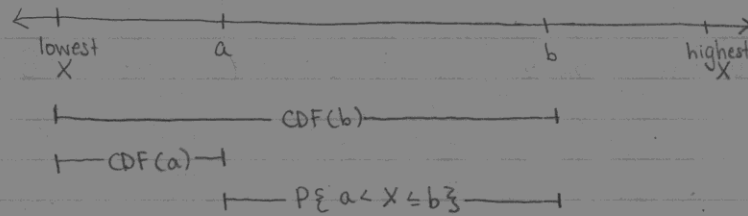 lowest a b highest
X X
CDF(b)
CDF(a)
P{ a < X ≤ b}